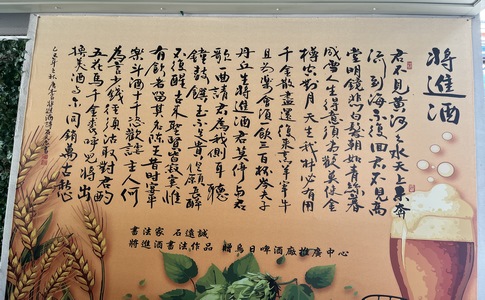 將進酒
君不見黃河之水天上來奔
流到海不復回君不見高
堂明鏡悲白髮朝如青絲暮
成雪人生得意須盡歡莫使金
樽空對月天生我材必有用
千金散盡還復來烹羊宰牛
且為樂會須飲三百杯岑夫子
丹丘生將進酒君莫停與君
歌一曲請君為我側耳聽
鐘鼓饌玉不足貴但願長醉
不復醒古來聖賢皆寂寞惟
有飲者留其名陳王昔時宴平
樂斗酒十千恣歡謔主人何
為言少錢徑須沽取對君酌
五花馬千金裘呼兒將出
換美酒與爾同銷萬古愁
書法家 石遠誠
將進酒書法作品 贈烏日啤酒廠推廣中心